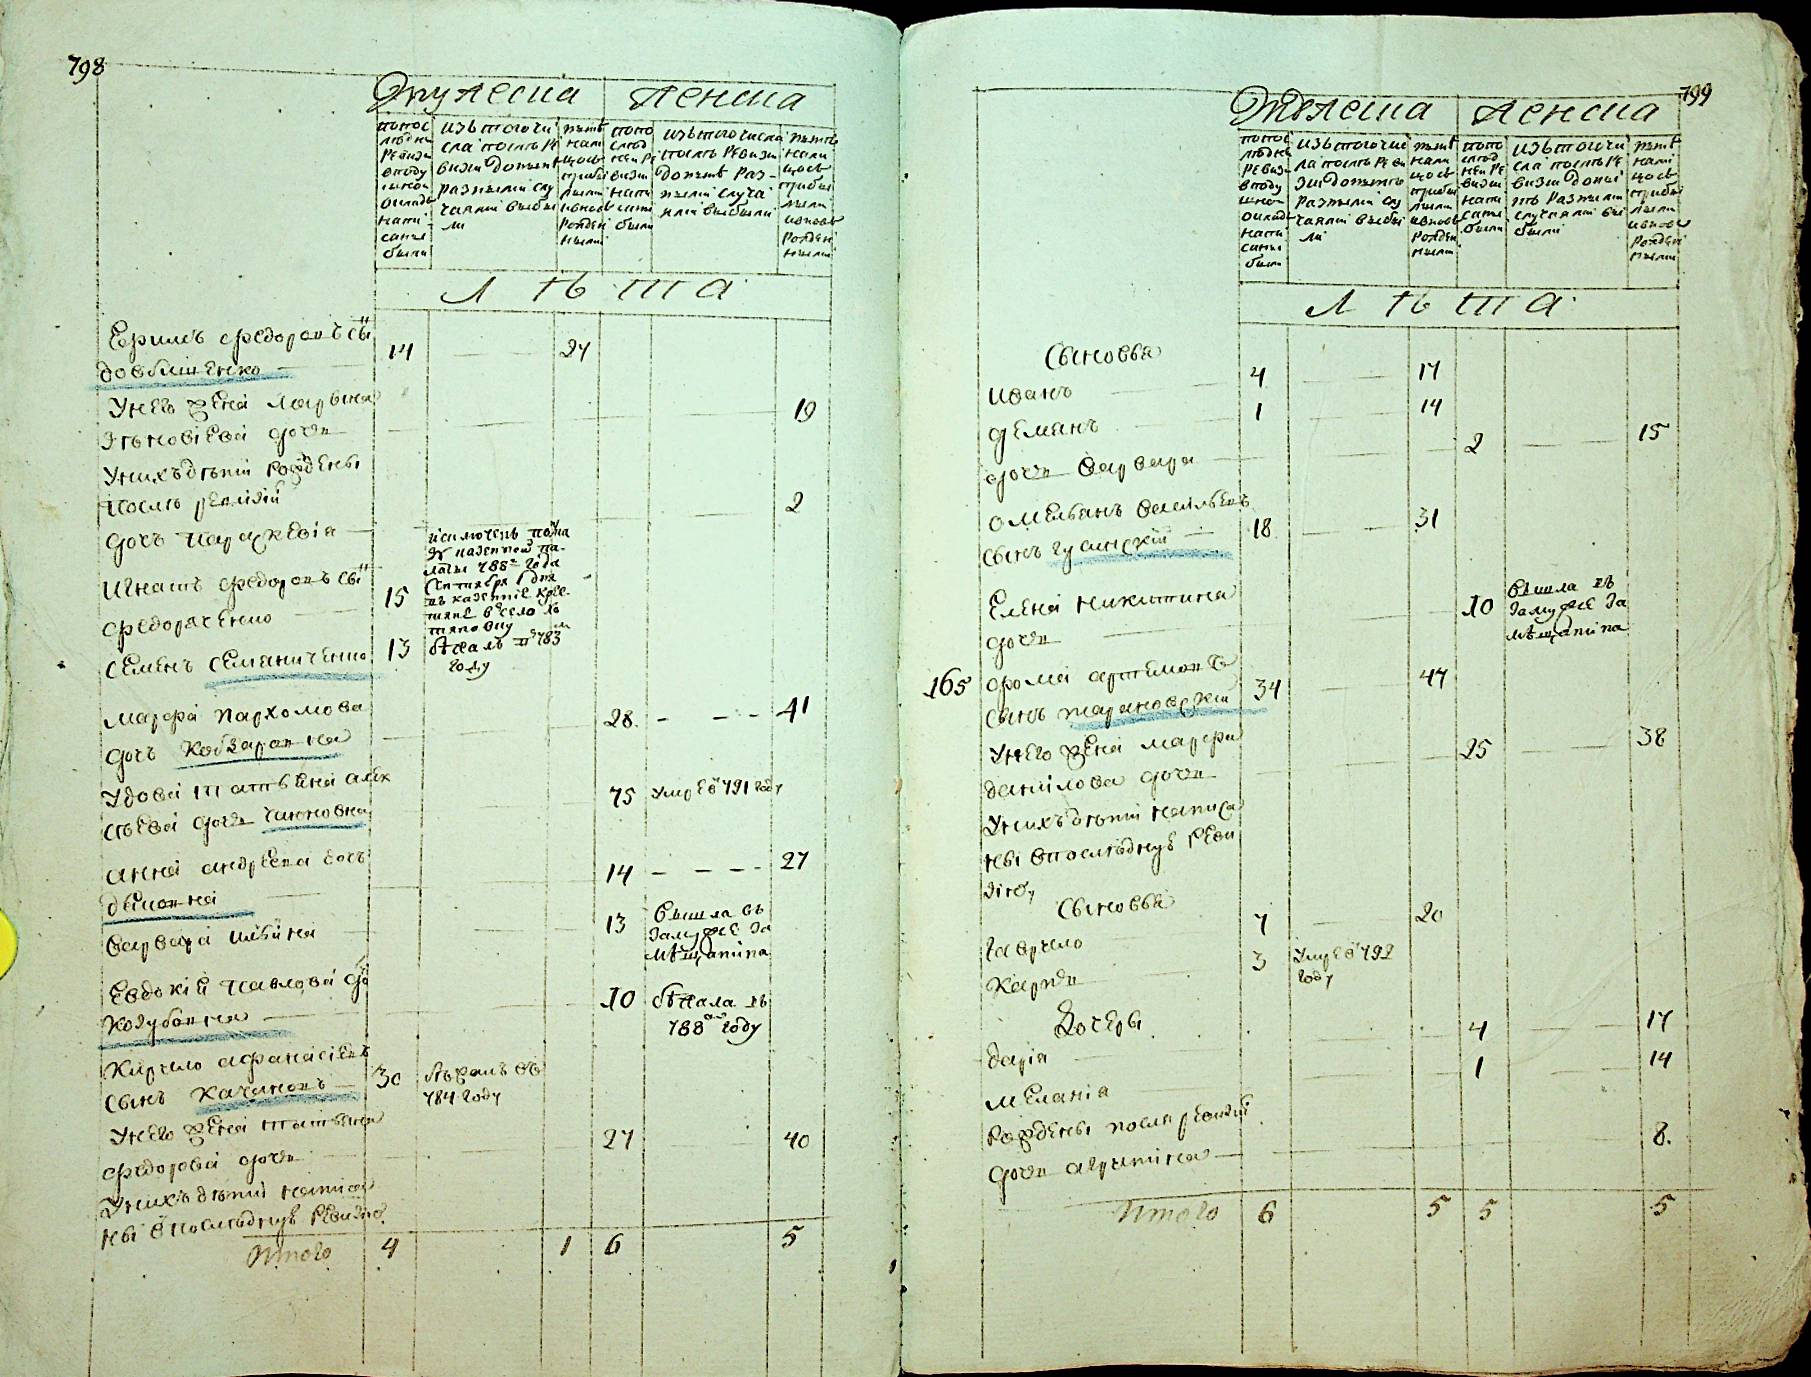 798
Мужеска Женска
по пос
лѣдне
ревизи
в поду
шном
окладе
напи
саны
были
изъ того чи
сла послѣ ре
визи до нынѣ
разными слу
чаями выбы
ли
нынѣ
нали
цо съ
прибы
лыми
и вновь
рожден
ными
по по
слѣд
ней ре
визи
напи
саны
были
изъ того числа
послѣ ревизи
до нынѣ раз
ными случа
ями выбыли
нынѣ
нали
цо съ
прибы
лыми
и вновь
рожден
ными
Л Ѣ Т А
Ефимъ Федоровъ сы
Довбишенко 14 27
У него жена Марьяна
Зѣновіева дочь 19
У нихъ дѣти рождены
после ревизіи
дочь Параскевіа 2
Игнатъ Федоровъ сы
Федораченко 15
исключенъ по ука
зу казенной па
латы 788 года
Сентября 1 дня
въ казенніе крес
тяне в село Ло
тяновку
Семенъ Семаниченко 13 бѣжалъ в 783м
году
Марфа Пархомова
дочь Кобзаровна 28 41
Удова Татьяна Алек
сѣева дочь 75 умре в 791 году
Анна Андреева дочь 14 27
Варвара Ильина 13 вышла въ
замуже за
мѣщанина
Евдокіа Павлова до
Козубовна 10 бѣжала въ
788м году
Кирило Афанасіевъ
сынъ Качановъ 30 бѣжалъ въ
784 году
У него жена Татьяна
Федорова дочь 27 40
У нихъ дѣти написа
ны в последнуѣ ревизію
Итого 4 1 6 5
799
Мужеска Женска
по пос
лѣдне
ревизи
в поду
шном
окладе
напи
саны
были
изъ того чис
ла послѣ реви
зи до нынѣ
разными слу
чаями выбы
ли
нынѣ
нали
цо съ
прибы
лыми
и вновь
рожден
ными
по по
слѣд
ней ре
визи
напи
саны
были
изъ того чи
сла послѣ ре
визи до ны
нѣ разными
случаями вы
были
нынѣ
нали
цо съ
прибы
лыми
и вновь
рожден
ными
Л Ѣ Т А
Сыновья
Иванъ 4 17
Демянъ 1 14
дочь Варвара 2 15
Омельянъ Васильевъ
сынъ Гусинскій 18 31
Елена Никитина
дочь 10 вышла въ
замуже за
мѣщанина
165 Фома Артемовъ
сынъ Тарановскій 34 47
У него жена Марфа
Данилова дочь 25 38
У нихъ дѣти написа
ны в последнуѣ реви
зію
Сыновья
Гаврило 7 20
Карпъ 3 умре в 792
году
Дочеры
Даріа 4 17
Меланіа 1 14
Рождены после ревизіи
дочь Агрипина 8.
Итого 6 5 5 5